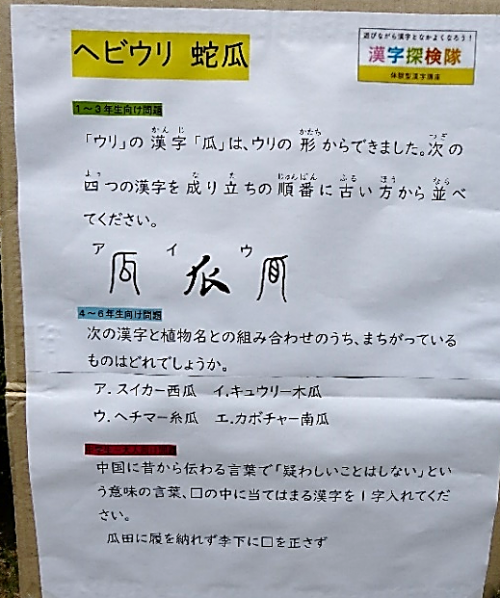 ヘビウリ 蛇瓜
遊びながら漢字となかよくなろう!
漢字探検隊
体験型漢字講座
1~3年生向け問題
「ウリ」の漢字「瓜」は、ウリの形からできました。次の
四つの漢字を成り立ちの順番に古い方から並べ
てください。
ア イ ウ
4~6年生向け問題
次の漢字と植物名との組み合わせのうち、まちがっている
ものはどれでしょうか。
ア.スイカー西瓜 イ.キュウリー木瓜
ウ.ヘチマー糸瓜 エ.カボチャー南瓜
中国に昔から伝わる言葉で「疑わしいことはしない」とい
う意味の言葉、□の中に当てはまる漢字を1字入れてくだ
さい。
瓜田に履を納れず李下に□を正さず